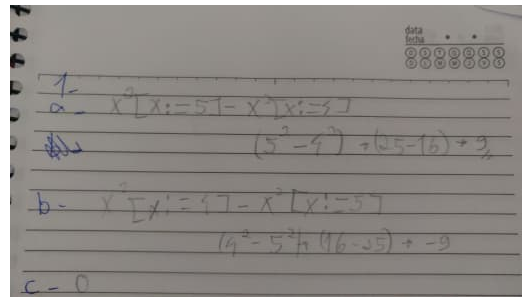 data
fecha
1-
a- x²[x:=5]-x²[x:=4]
(5²-4²)→(25-16)→9
b- x²[x:=4]-x²[x:=5]
(4²-5²)→(16-25)→-9
c-0